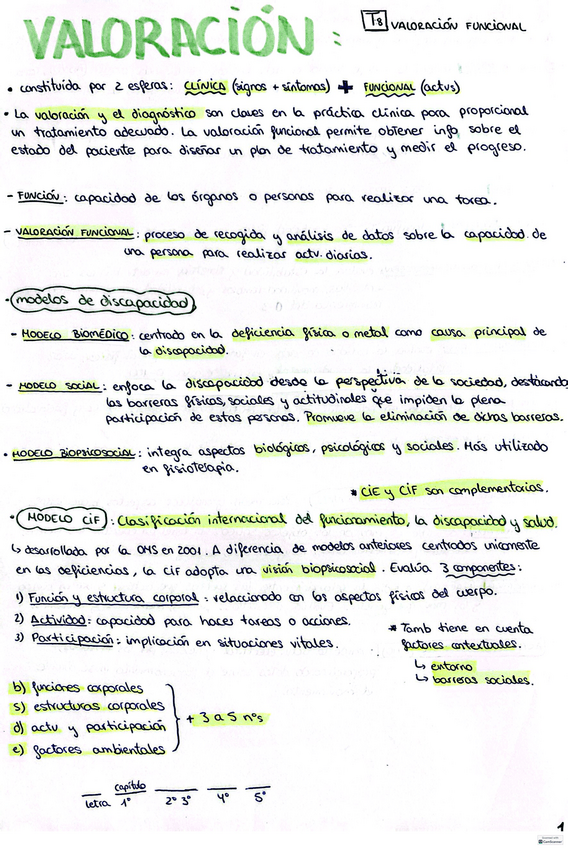 T8 VALORACIÓN FUNCIONAL
VALORACIÓN:
• constituida por 2 esferas: CLÍNICA (signos + síntomas) + FUNCIONAL (actvs)
• La valoración y el diagnóstico son claves en la práctica clínica para proporcional
un tratamiento adecuado. La valoración funcional permite obtener info sobre el
estado del paciente para diseñar un plan de tratamiento y medir el progreso.
- FUNCIÓN: capacidad de los órganos o personas para realizar una tarea.
- VALORACIÓN FUNCIONAL: proceso de recogida y análisis de datos sobre la capacidad de
una persona para realizar actv. diarias.
• modelos de discapacidad
- MODELO BIOMÉDICO: centrado en la deficiencia física o metal como causa principal de
la discapacidad.
- MODELO SOCIAL: enfoca la discapacidad desde la perspectiva de la sociedad, destacando
las barreras físicas, sociales y actitudinales que impiden la plena
participación de estas personas. Promueve la eliminación de dichas barreras.
• MODELO BIOPSICOSOCIAL: integra aspectos biológicos, psicológicos y sociales. Más utilizado
en fisioterapia.
* CIE y CIF son complementarias.
• MODELO CIF: Clasificación internacional del funcionamiento, la discapacidad y salud.
↳ desarrollada por la OMS en 2001. A diferencia de modelos anteriores centrados unicamente
en las deficiencias, la CIF adopta una visión biopsicosocial. Evalúa 3 componentes:
1) Función y estructura corporal: relaccionado con los aspectos físicos del cuerpo.
2) Actividad: capacidad para hacer tareas o acciones.
3) Participación: implicación en situaciones vitales.
* Tamb tiene en cuenta
factores contextuales.
↳ entorno
↳ barreras sociales.
b) funciones corporales
s) estructuras corporales
d) actv y participación
e) factores ambientales
+ 3 a 5 nºs
letra capítulo 1º 2º 3º 4º 5º
1
CamScanner